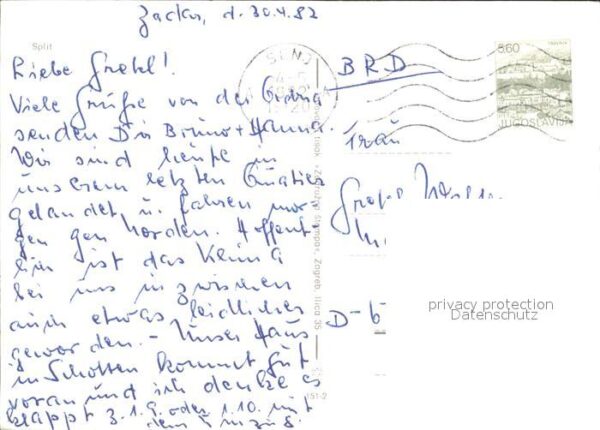 Zadar, d. 30.4.82
Split
Liebe Gretel!
Viele Grüße von der Adria
senden Dir Bruno + Hanna.
Wir sind heute in
unserem letzten Quartier
gelandet u. fahren mor-
gen gen Norden. Hoffent-
lich ist das Klima
bei uns inzwischen
auch etwas leidlicher
geworden. - Unser Haus
in Schotten kommt gut
voran und ich denke es
klappt z. 1.9. oder 1.10. mit
dem Umzug.
SENJ
BRD
5,60
JUGOSLAVIJA
Frau
Gretel
D-6
Zagreb, Ilica 35
151-2
privacy protection
Datenschutz